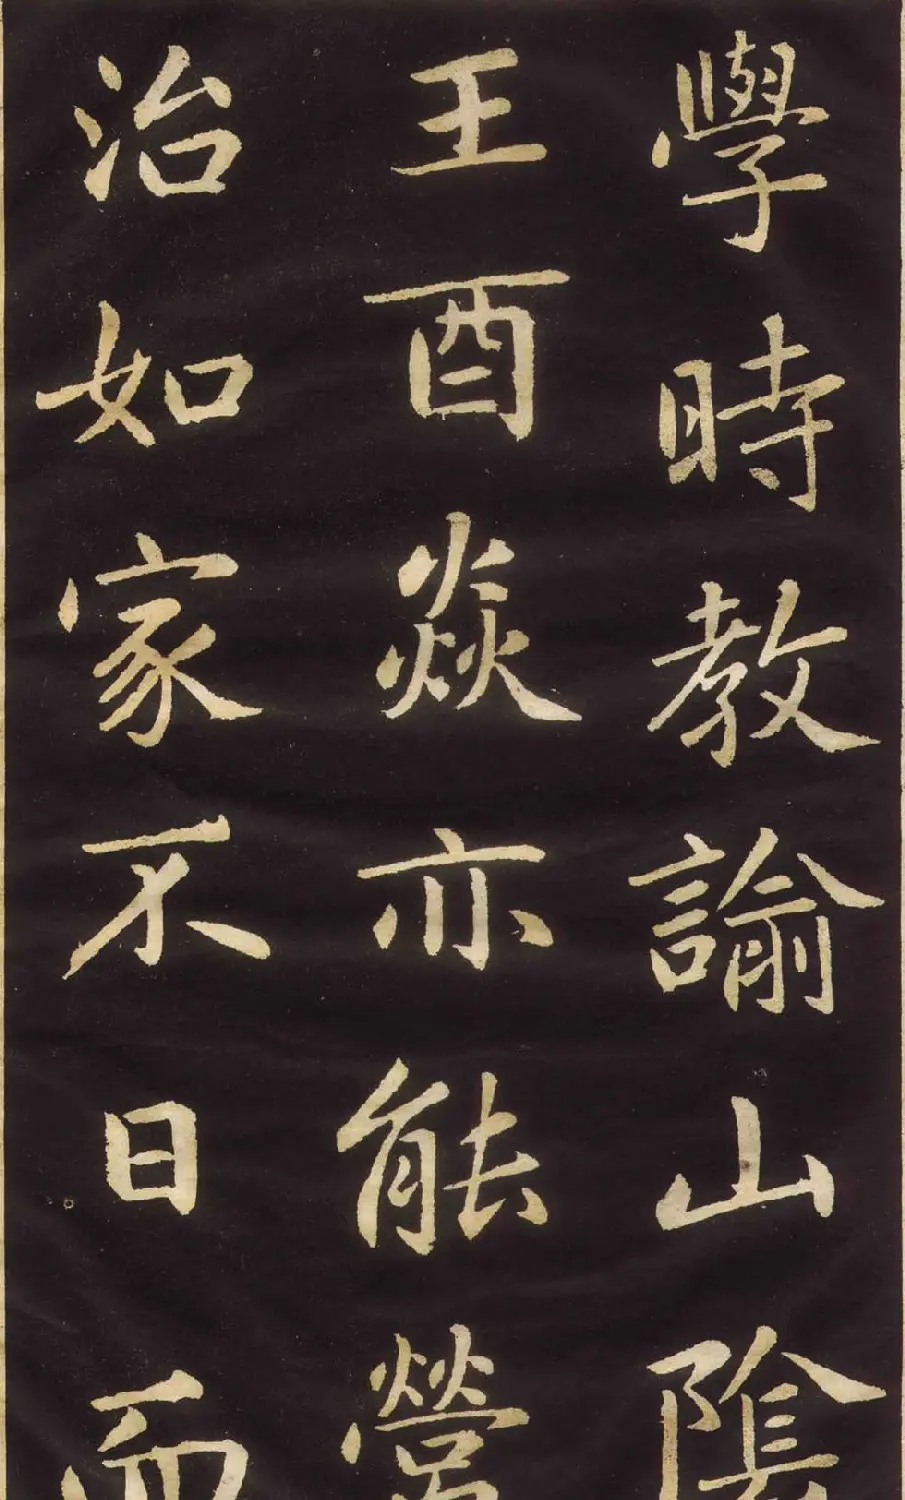 學時教諭山陰
王酉焱亦能營
治如家不日而